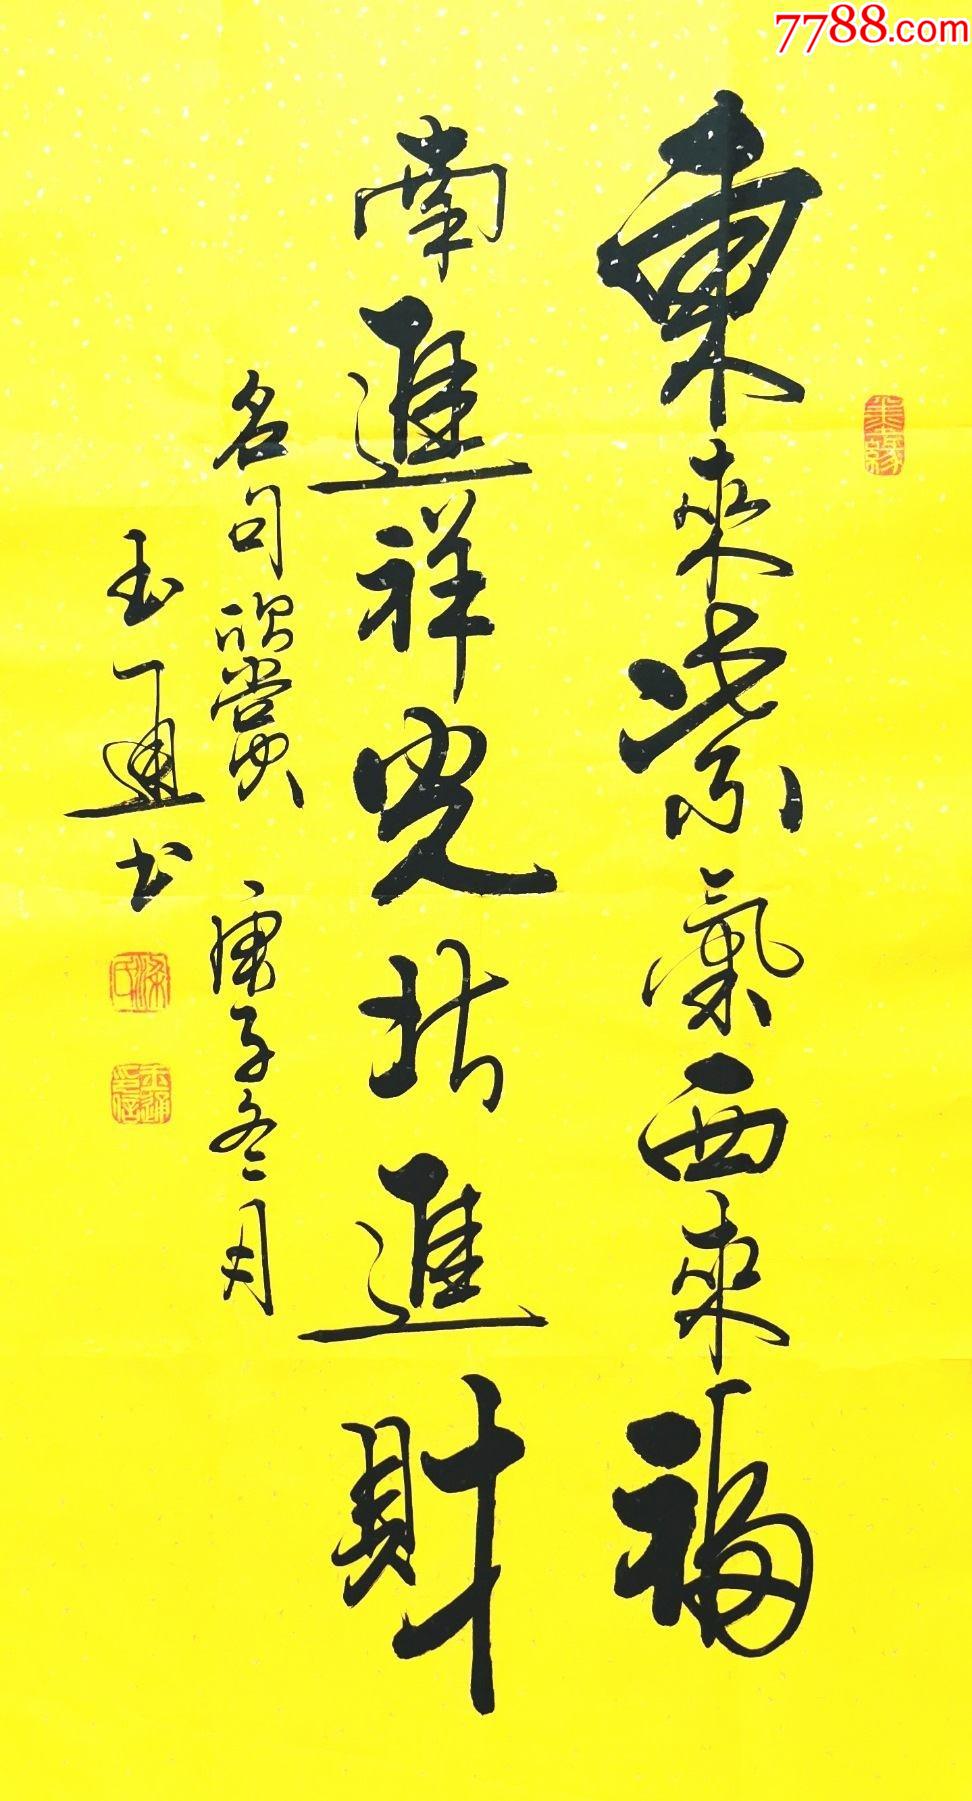 7788.com
東來紫氣西來福
南進祥光北進財
名句欣賞 庚子冬月
玉通書